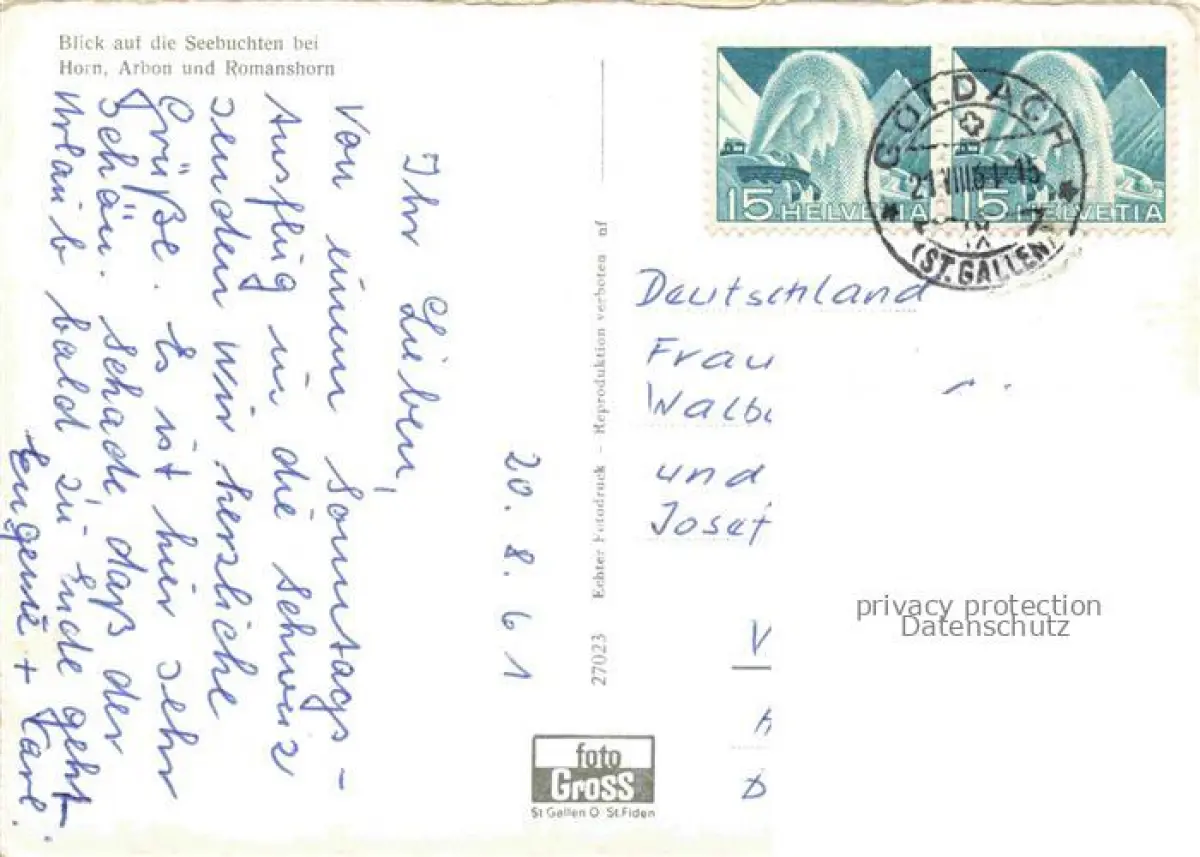 Blick auf die Seebuchten bei
Horn, Arbon und Romanshorn
20. 8. 61
Ihr Lieben,
Von einem Sonntags-
Ausflug in die Schweiz
senden wir herzliche
Grüße. Es ist hier sehr
schön. Schade, daß der
Urlaub bald zu Ende geht
Eugenie + Karl.
27023 Echter Fotodruck - Reproduktion verboten nf
foto
Gross
St Gallen O St. Fiden
15 HELVETIA
15 HELVETIA
GOLDACH
21 VIII 61-15
(ST. GALLEN)
Deutschland
Frau
und
Josef
privacy protection
Datenschutz